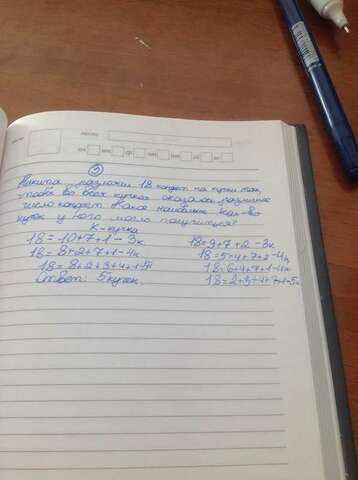 ③
Никита разложил 18 конфет на кучки так,
чтобы во всех кучках оказалось разное
число конфет. Какое наибольшее кол-во
кучек у него могло получиться?
К - кучка
18 = 10+7+1 - 3к 18 = 9+7+2 - 3к
18 = 8+2+7+1 - 4к 18 = 5+4+7+2 - 4к
18 = 8+2+3+4+1 - 5к 18 = 6+4+7+1 - 4к
Ответ: 5 кучек. 18 = 2+3+4+7+1 - 5к